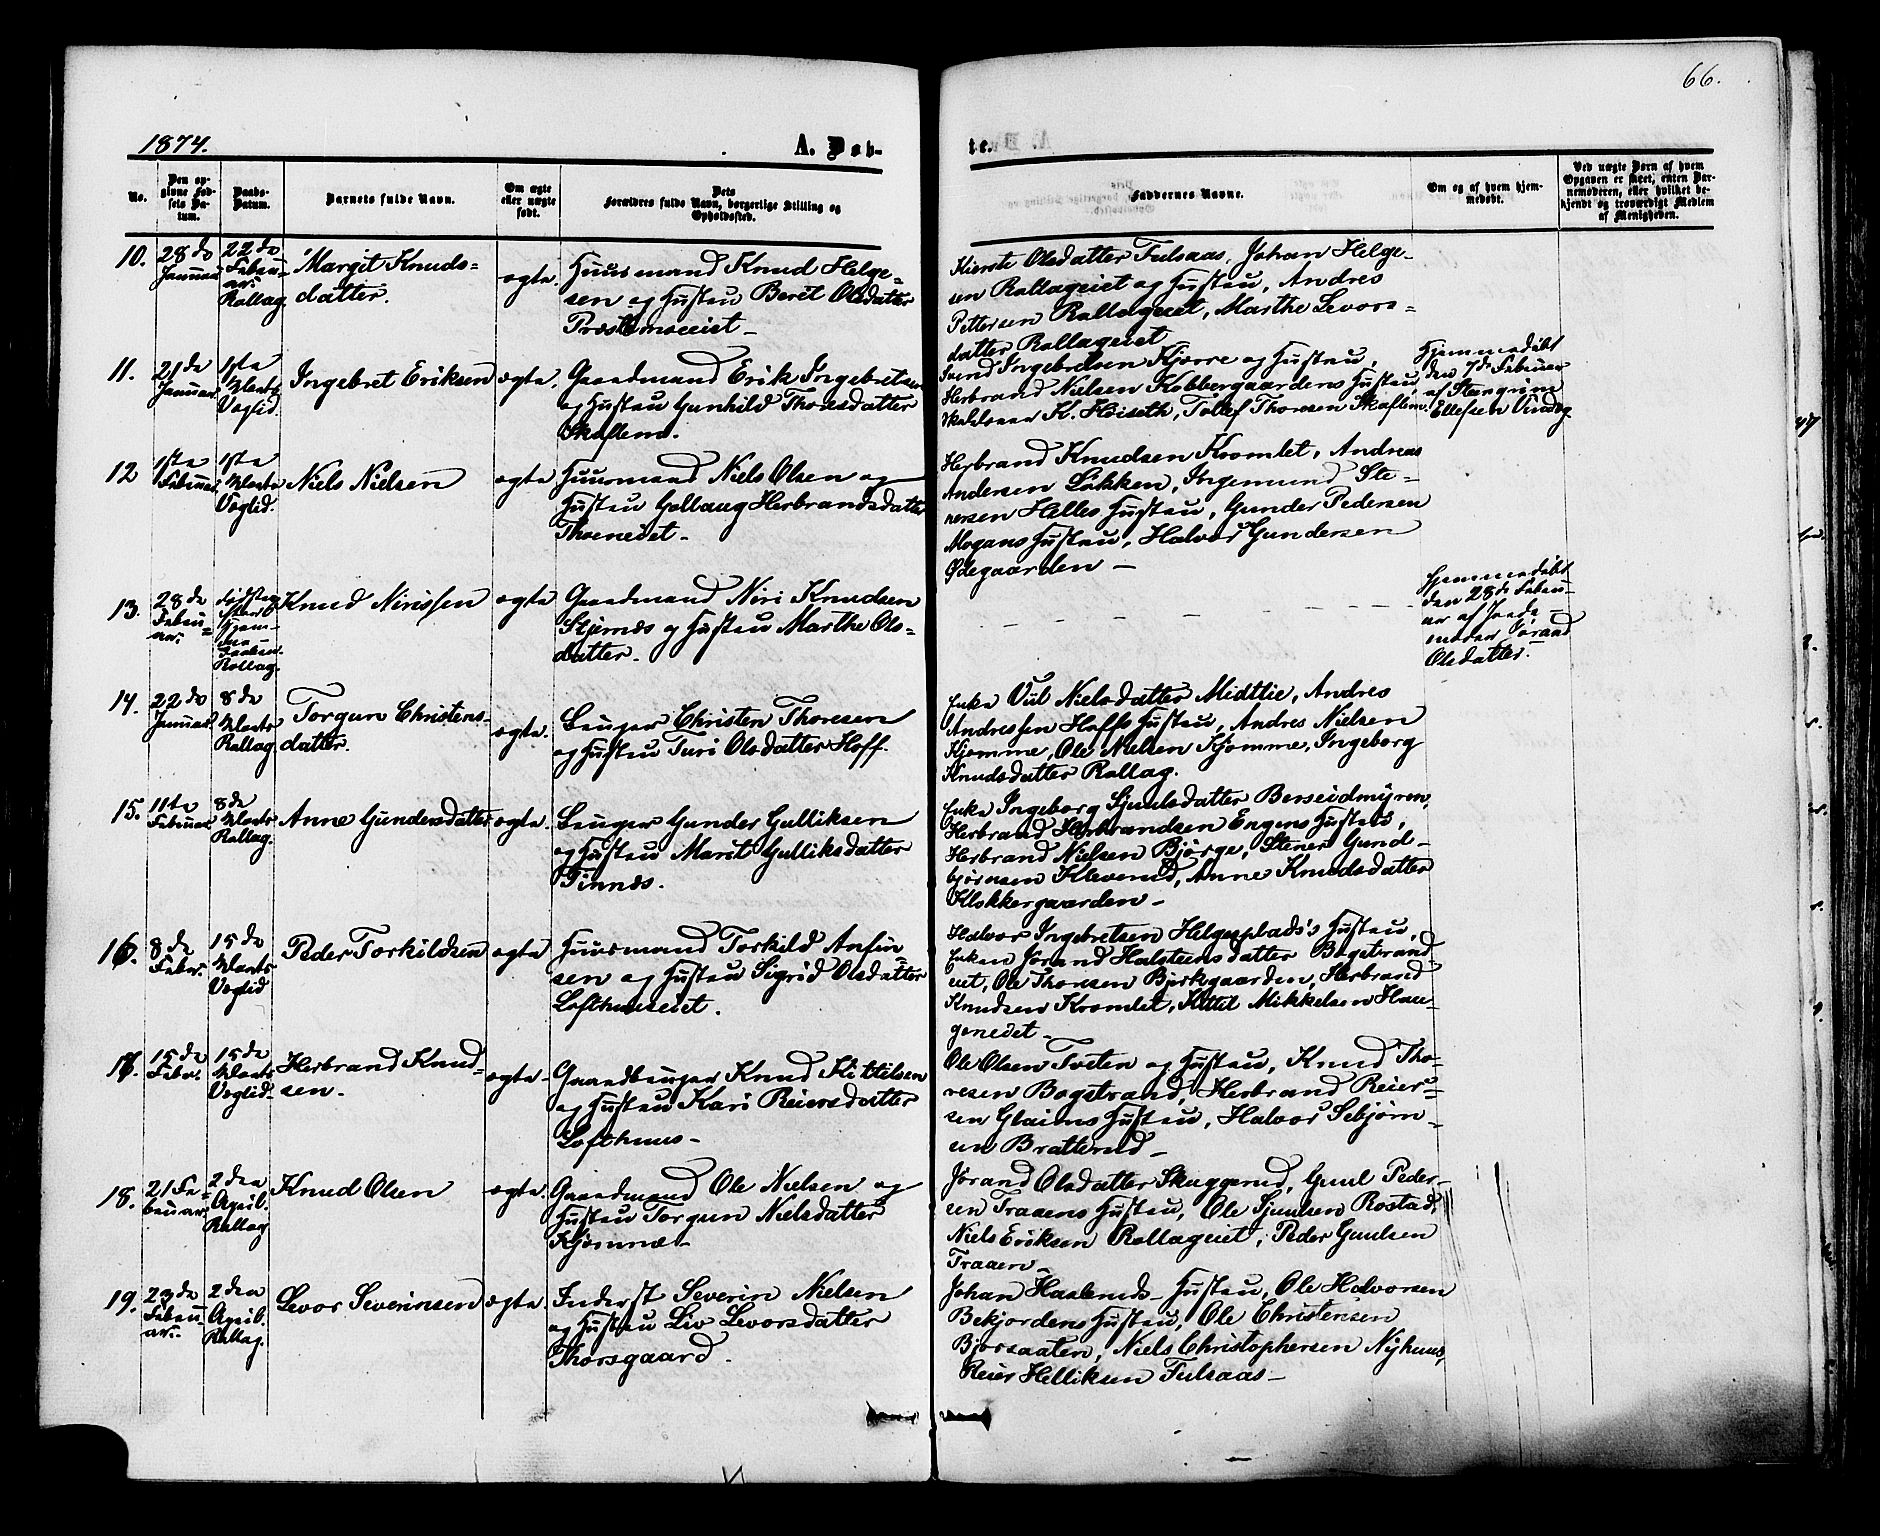 66.
1874.
A. Døb-
te.
No.
Den op-
givne Fød-
sels Da-
tum.
Daabs-
Datum.
Barnets fulde Navn.
Om ægte
eller uægte
født.
Dets
Forældres fulde Navn, borgerlige Stilling og
Opholdssted.
Faddernes Navne.
Om og af hvem hjem-
medøbt.
Ved uægte Børn af hvem
Opgaven er skeet, enten Bar-
nemoderen, eller hvilket be-
kjendt og troværdigt Medlem
af Menigheden.
10.
28de
Januar
22de
Februar
Rollag
Margit Knuds-
datter.
ægte.
Huusmand Knud Helge-
sen og Hustru Berit Olsdatter
Kierste Olsdatter Fulsaas, Johan Helge-
sen Rollageiet og Hustru, Andres
Pettersen Rollageiet, Marthe Levors-
datter Rollageiet
11.
21de
Januar
1ste
Marts
Veglid.
Ingebret Eriksen
ægte.
Gaardmand Erik Ingebretsen
og Hustru Gunhild Thorsdatter
Skaflem.
Svend Ingebretsen Kjerre og Hustru,
Herbrand Nielsen Kobbergaardens Hustru,
K. Høiseth, Tollef Thorsen Skaflem.
Hjemmedøbt
den 7de Februar
af Steingrim
Ellefsen Vindeg
12
1ste
Februar
1ste
Marts
Veglid.
Niels Nielsen
ægte
Huusmand Niels Olsen og
Hustru Gollaug Herbrandsdatter
Herbrand Knudsen Kromlet, Andreas
Andersen Løkken, Ingemund Ste-
nersen Helles Hustru, Gunder Pedersen
Mogans Hustru, Halvor Gundersen
Ødegaarden —
13.
28de
Febru-
ar.
Rollag.
Knud Nirissen
ægte
Gaardmand Niri Knudsen
Stjernes og Hustru Marthe Ols-
datter.
Hjemmedøbt
den 28de Febru-
ar af Jorde-
moder Jørand
Olsdatter.
14.
22de
Januar
8de
Marts
Rollag
Torgun Christens-
datter.
ægte.
Bruger Christen Thoresen
og Hustru Turi Olsdatter Hoff.
Enke Viil Nielsdatter Midtlie, Andres
Andressen Hoffs Hustru, Andres Nielsen
Kjomme, Ole Nielsen Kjomme, Ingeborg
Knudsdatter Rollag.
15.
11te
Februar
8de
Marts
Rollag.
Anne Gundersdatter
ægte.
Bruger Gunder Gulliksen
og Hustru Marit Gulliksdatter
Tinnes.
Enke Ingeborg Sjulsdatter Berseidmyren,
Herbrand Herbrandsen Engens Hustru,
Herbrand Nielsen Bjørge, Stener Gund-
bjørnsen Kleverud, Anne Knudsdatter
Klokkergaarden —
16.
8de
Febr.
15de
Marts
Veglid
Peder Torkildsen
ægte.
Huusmand Torkild Anfin-
sen og Hustru Sigrid Olsdatter
Lofthuuseiet.
Halvor Ingebretsen Helgesplads's Hustru,
Enken Jørand Halsteensdatter Bogstrand-
eiet, Ole Thorsen Bjørkgaarden, Herbrand
Knudsen Kromlet, Kittil Mikkelsen Hau-
geneiet —
17.
15de
Febr.
15de
Marts
Veglid
Herbrand Knud-
sen.
ægte.
Gaardbruger Knud Kittilsen
og Hustru Kari Reiersdatter
Lofthuus —
Ole Olsen Tveten og Hustru, Knud Tho-
resen Bogstrand, Herbrand Reier-
sen Glaims Hustru, Halvor Sebjørn-
sen Bratterud —
18.
21 Fe-
bruar.
2den
April.
Rollag
Knud Olsen
ægte.
Gaardmand Ole Nielsen og
Hustru Torgun Nielsdatter
Jørand Olsdatter Skuggerud, Guul Peder-
sen Traaens Hustru, Ole Sjulsen Rostad,
Niels Eriksen Rollageiet, Peder Guulsen
Traaen —
19.
23de
Febru-
ar.
2den
April.
Rollag.
Levor Severinsen
ægte.
Inderst Severin Nielsen
og Hustru Liv Levorsdatter
Thorsgaard.
Johan Haaleruds Hustru, Ole Halvorsen
Bekjordens Hustru, Ole Christensen
Bjørsaaten, Niels Christophersen Nyhuus,
Reier Helliksen Fulsaas —